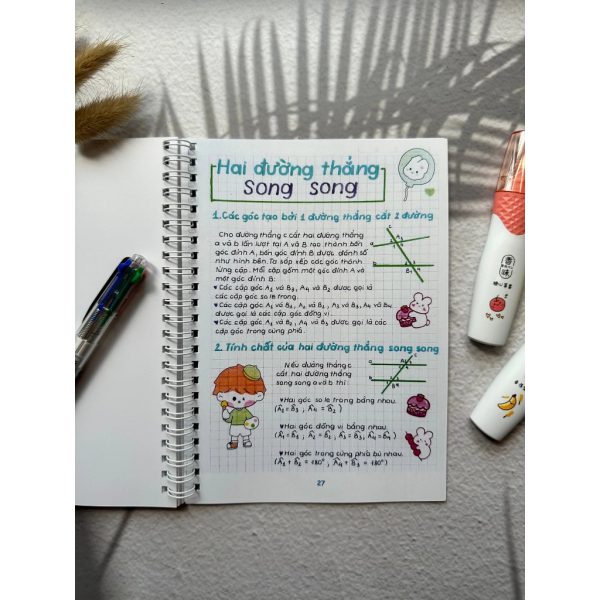 Hai đường thẳng
song song
1. Các góc tạo bởi 1 đường thẳng cắt 2 đường
Cho đường thẳng c cắt hai đường thẳng
a và b lần lượt tại A và B tạo thành bốn
góc đỉnh A, bốn góc đỉnh B được đánh số
như hình bên. Ta sắp xếp các góc thành
từng cặp. Mỗi cặp gồm một góc đỉnh A và
một góc đỉnh B:
♥ Các cặp góc A₁ và B₃, A₄ và B₂ được gọi là
các cặp góc so le trong.
được gọi là các cặp góc đồng vị.
cặp góc trong cùng phía.
2. Tính chất của hai đường thẳng song song
Nếu đường thẳng c
cắt hai đường thẳng
song song a và b thì:
♥ Hai góc so le trong bằng nhau.
♥ Hai góc đồng vị bằng nhau.
♥ Hai góc trong cùng phía bù nhau.
27
香
味